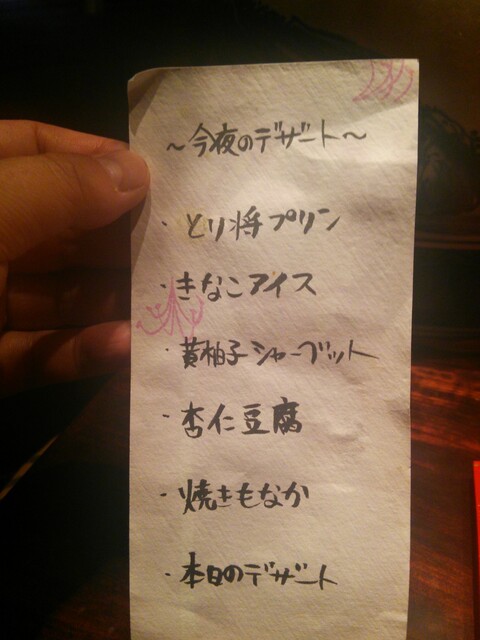 ～今夜のデザート～
・とり将プリン
・きなこアイス
・黄柚子シャーベット
・杏仁豆腐
・焼きもなか
・本日のデザート